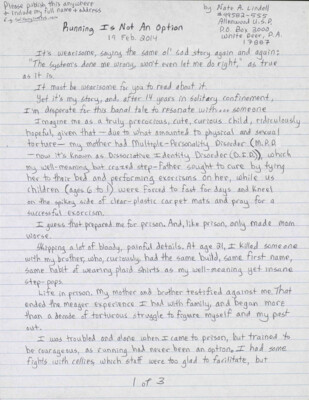 Please publish this anywhere
+ include my full name + address
by Nate A. Lindell
#49582-555
Allenwood U.S.P.
P.O. Box 3000
White Deer, P.A.
17887
Running Is Not An Option
19 Feb. 2014
It's wearisome, saying the same ol' sad story again and again;
"The system's done me wrong, won't even let me do right," as true
as it is.
It must be wearisome for you to read about it.
Yet it's my story, and, after 14 years in solitary confinement,
I'm desperate for this banal tale to resonate with... someone.
Imagine me as a truly precocious, cute, curious child, ridiculously
hopeful, given that — due to what amounted to physical and sexual
torture — my mother had Multiple-Personality Disorder (M.P.D.
— now it's known as Dissociative Identity Disorder (D.I.D.)), which
my well-meaning, but crazed step-father sought to cure by tying
her to their bed and performing exorcisms on her, while us
children (ages 6 to 1) were forced to fast for days and kneel
on the spikey side of clear-plastic carpet mats and pray for a
successful exorcism.
I guess that prepared me for prison. And, like prison, only made mom
worse.
Skipping a lot of bloody, painful details. At age 21, I killed someone
with my brother, who, curiously, had the same build, same first name,
same habit of wearing plaid shirts as my well-meaning yet insane
step-pops.
Life in prison. My mother and brother testified against me. That
ended the meager experience I had with family, and began more
than a decade of torturous struggle to figure myself and my past
out.
I was troubled and alone when I came to prison, but trained to
be courageous, as running had never been an option. I had some
fights with cellies, which staff were too glad to facilitate, but
1 of 3